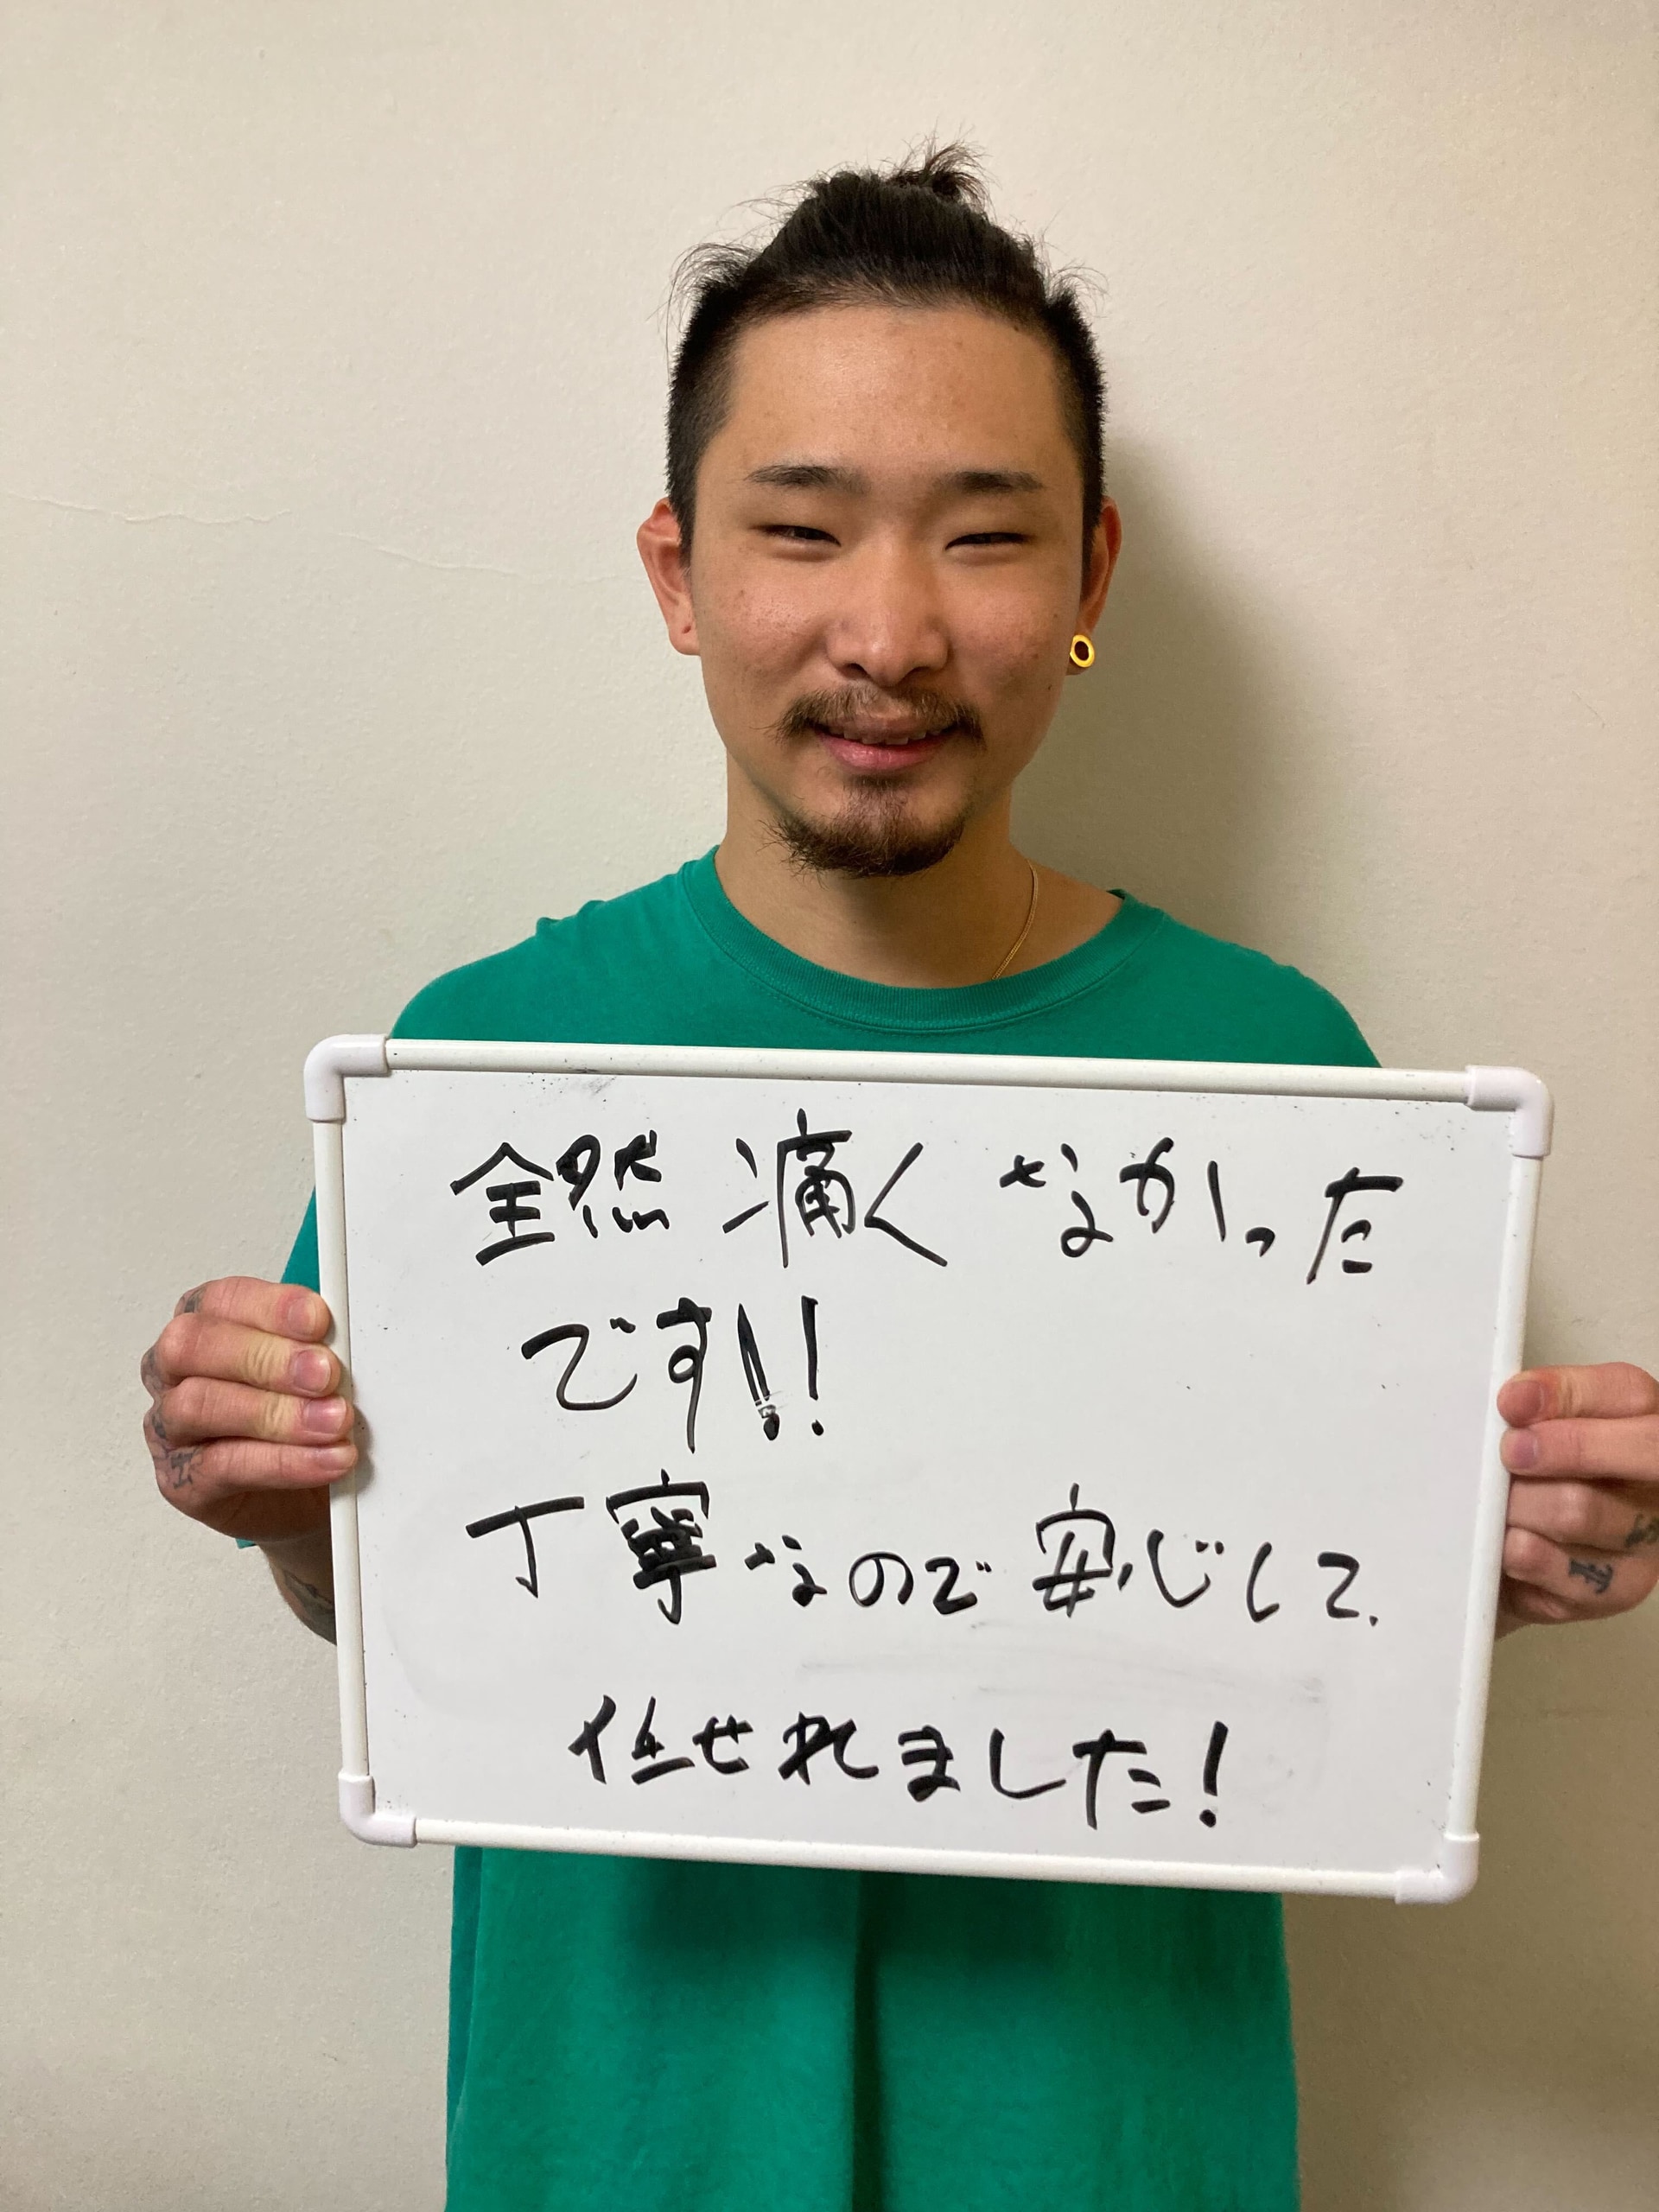 全然痛くなかった
です!!
丁寧なので安心して、
任せれました!